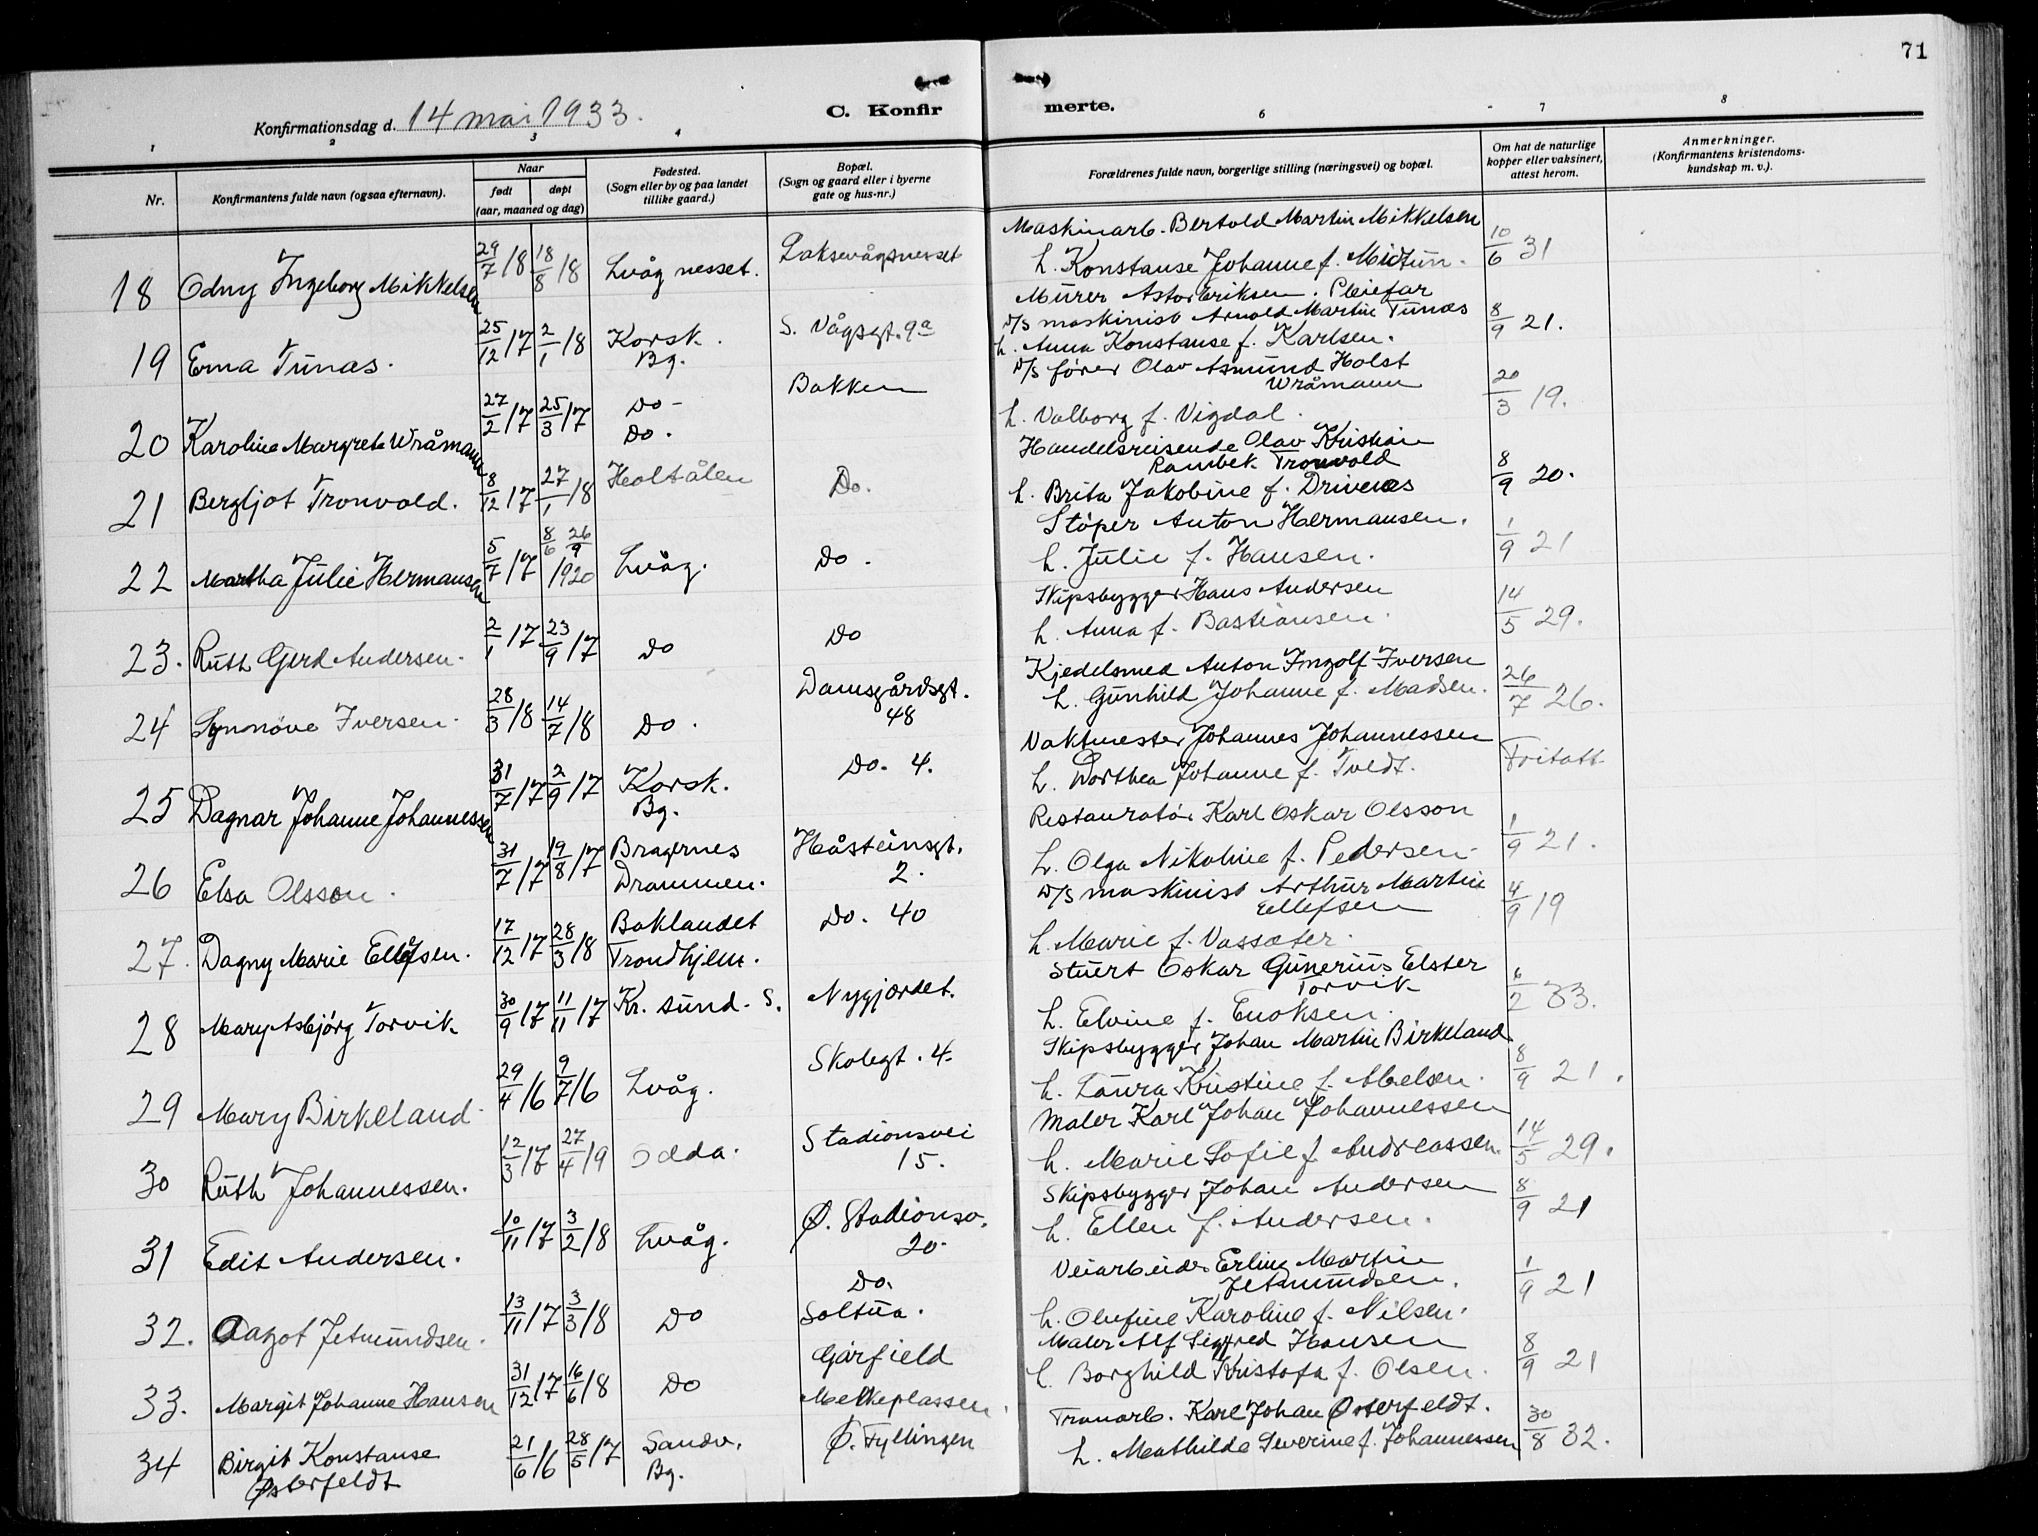 71
Konfirmationsdag d. 14 mai 1933.
C. Konfirmerte.
1 2 3 4 6 7 8
Nr.
Konfirmantens fulde navn (ogsaa efternavn).
Naar
født døpt
(aar, maaned og dag)
Fødested.
(Sogn eller by og paa landet
tillike gaard.)
Bopæl.
(Sogn og gaard eller i byerne
gate og hus-nr.)
Forældrenes fulde navn, borgerlige stilling (næringsvei) og bopæl.
Om hat de naturlige
kopper eller vaksinert,
attest herom.
Anmerkninger.
(Konfirmantens kristendoms-
kundskap m. v.).
18 Odny Ingeborg Mikkelsen 29/7/18 18/8/18 Lvåg nesset. Laksevågsnesset
Maskinarb. Bertold Martin Mikkelsen
h. Konstanse Johanne f. Midtun. 10/6 31
Murer Astor Eriksen. Pleiefar
19 Erna Tunæs. 25/12/17 2/1/18 Korsk. Bg. S. Vågsgt. 9a
D/S maskinist Arnold Martin Tunæs
h. Anna Konstanse f. Karlsen. 8/9 21.
20 Karoline Margrete Wråmann 27/2/17 25/3/17 Do - Do. Bakken
D/S fører Olav Asmund Holst
Wråmann
h. Valborg f. Vigdal. 20/3 19.
21 Bergljot Tronvold. 8/12/17 27/1/18 Holtålen Do.
Handelsreisende Olav Kristian
Rambek Tronvold
h. Brita Jakobine f. Drivenes 8/9 20.
22 Martha Julie Hermansen 5/7/17 8/6 26/9 1920 Lvåg. Do.
Støper Anton Hermansen.
h. Julie f. Hansen. 1/9 21
23. Ruth Gerd Andersen. 2/1/17 23/9/17 Do Do
Skipsbygger Hans Andersen
h. Anna f. Bastiansen. 14/5 29.
24 Synnøve Iversen. 28/3/18 14/7/18 Do. Damsgårdsgt. 48
Kjedelsmed Anton Ingolf Iversen
h. Gunhild Johanne f. Madsen. 26/7 26.
25 Dagnar Johanne Johannessen 31/7/17 2/9/17 Korsk. Bg. Do. 4.
Vaktmester Johannes Johannessen
h. Dorthea Johanne f. Tvedt. Fritatt
26 Elsa Olsson. 31/7/17 19/8/17 Bragernes Drammen. Håsteinsgt. 2.
Restauratør Karl Oskar Olsson
h. Olga Nikoline f. Pedersen 1/9 21.
27. Dagny Marie Ellefsen. 17/12/17 28/3/18 Baklandet Trondhjem. Do. 40
D/S maskinist Arthur Martin
Ellefsen
h. Marie f. Vassæter. 4/9 19
28 Mary Asbjørg Torvik 30/9/17 11/11/17 Kr. sund. S. Nygjerdet.
Stuert Oskar Gunerius Elster
Torvik
h. Elvine f. Enoksen. 6/2 33.
29 Mary Birkeland 29/4/16 9/7/16 Lvåg. Skolegt. 4.
Skipsbygger Johan Martin Birkeland
h. Laura Kristine f. Abelsen. 8/9 21.
30 Ruth Johannessen. 12/3/17 27/4/19 Odda. Stadionsvei 15.
Maler Karl Johan Johannessen
h. Marie Sofie f. Andreassen. 14/5 29.
31 Edit Andersen. 10/11/17 3/2/18 Lvåg. Ø. Stadionsv. 20.
Skipsbygger Johan Andersen
h. Ellen f. Andersen. 8/9 21
32. Aagot Jetmundsen. 13/11/17 3/3/18 Do Do. Saltua.
Veiarbeider Erling Martin
Jetmundsen.
h. Olufine Karoline f. Nilsen. 1/9 21
33. Margit Johanne Hansen 31/12/17 16/6/18 Do Garfield Melkeplassen.
Maler Alf Sigfred Hansen
h. Borghild Kristofa f. Olsen. 8/9 21
34 Birgit Konstanse Østerfeldt 21/6/16 28/5/17 Sandv. Bg. Ø. Fyllingen
Tranarb. Karl Johan Østerfeldt.
h. Mathilde Severine f. Johannessen 30/8 32.